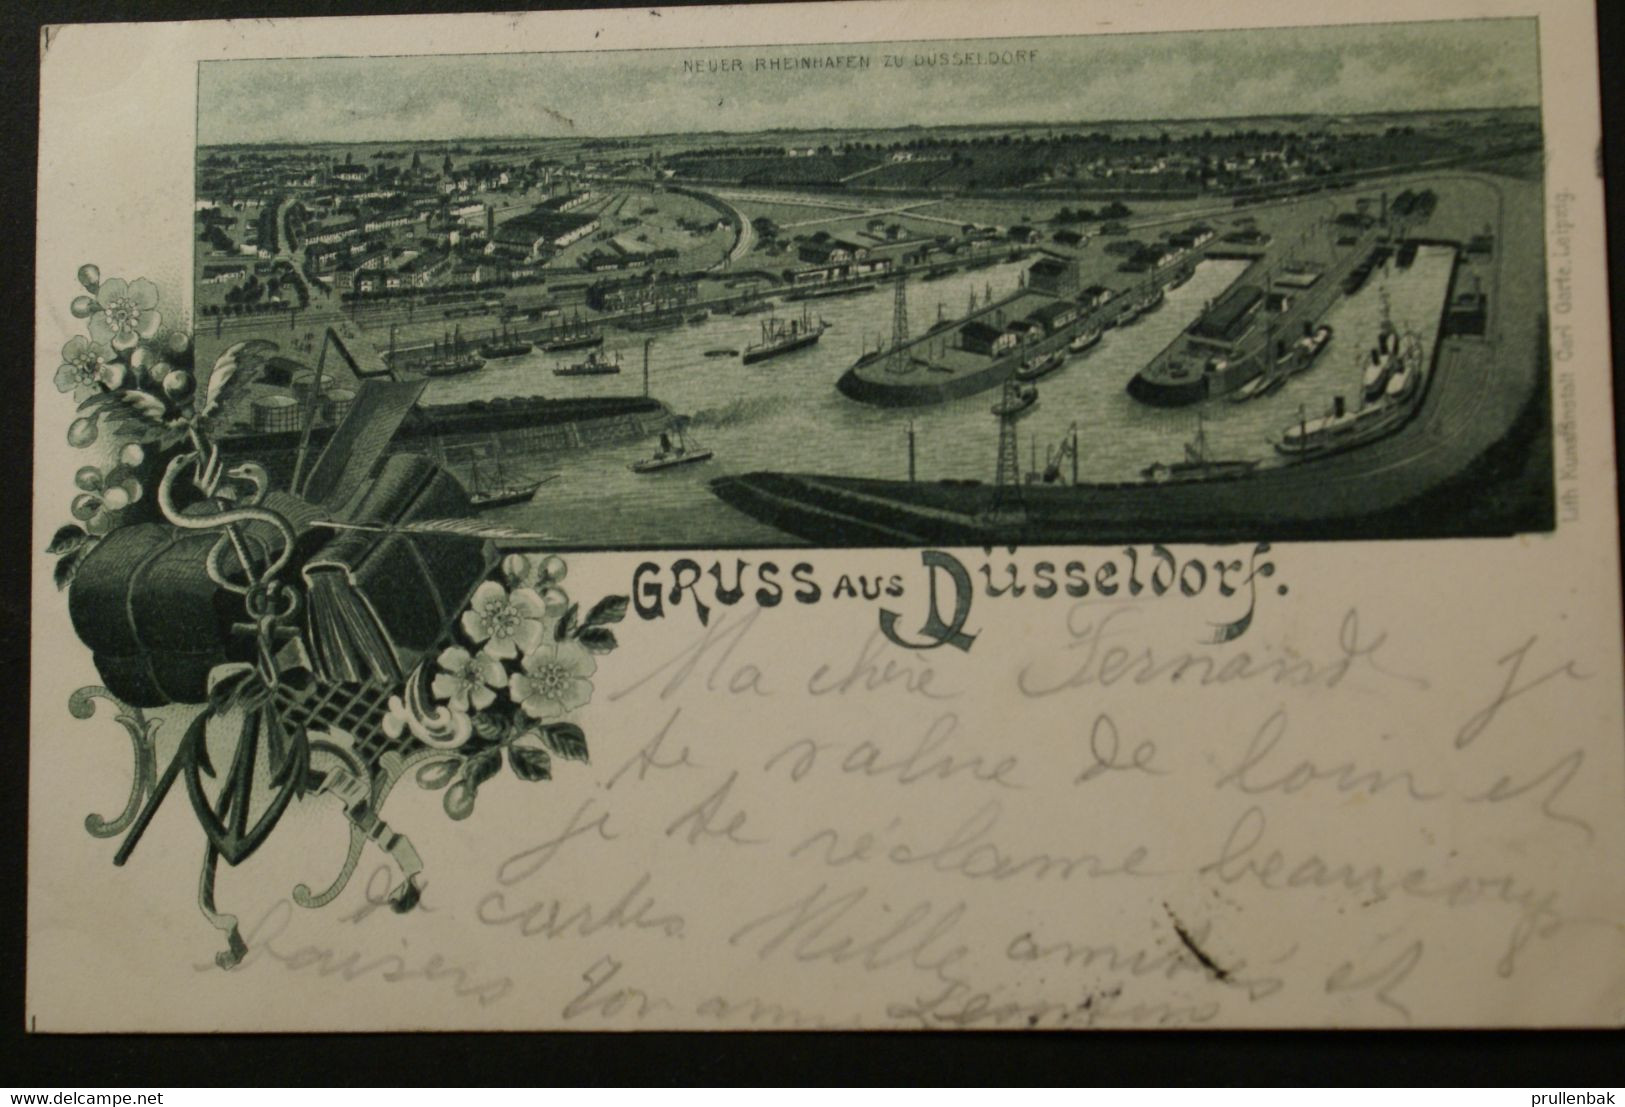 NEUER RHEINHAFEN ZU DÜSSELDORF
Lith. Kunstanstalt Carl Garte, Leipzig.
GRUSS AUS Düsseldorf.
Ma chère Fernande je
te salue de loin et
je te réclame beaucoup
de cartes Mille amitiés et
baisers Ton amie Léontin
delcampe.net
prullenbak